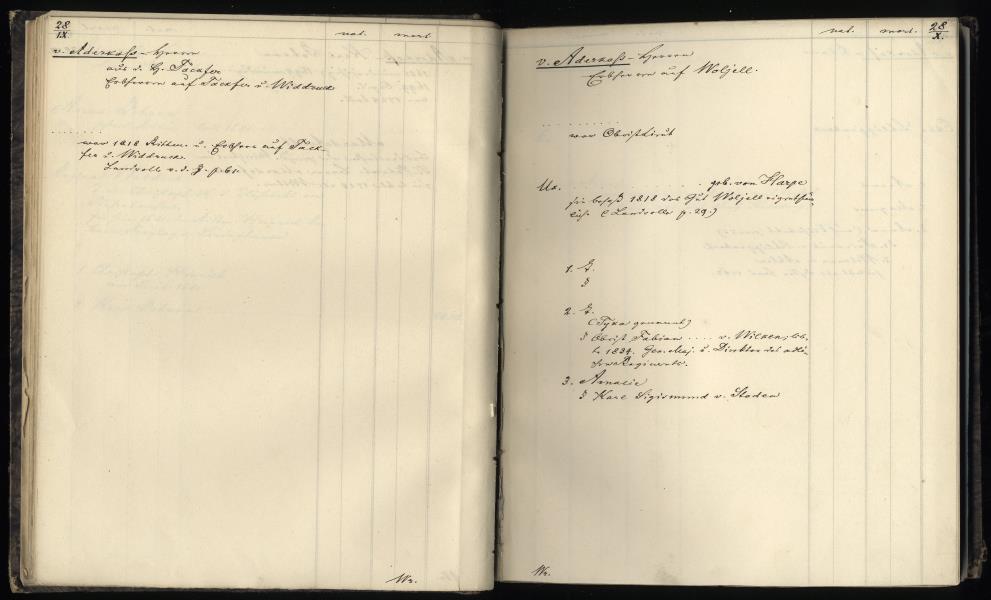 28
IX.
nat. mort.
v. Aderkaß-Herrn
aus d. H. Täckfer
Erbherrn auf Täckfer u. Widdruck
. . . . . . .
war 1818 Rittm. u. Erbherr auf Täck-
fer u. Widdruck.
Landrolle v. d. J. p. 61.
Wr.
nat. mort. 28
X.
v. Aderkaß-Herrn
Erbherrn auf Woljell.
. . . . . . . . . .
war ObristLieut
Ux. . . . . . . . . . . . geb. von Harpe
sie besaß 1818 das Gut Woljell eigenthüm-
lich. (Landrolle p. 29.)
1. F.
§
2. F.
(Tyka genannt)
§ Obrist Fabian . . . . v. Wilken, leb-
te 1834. Gen. Maj. u.
Regiments.
3. Amalie
§ Karl Sigismund v. Staden
Wr.